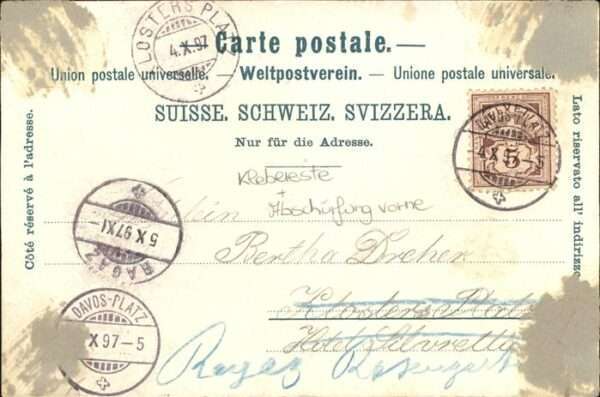 Carte postale.—
Union postale universelle. — Weltpostverein. — Unione postale universale.
SUISSE. SCHWEIZ. SVIZZERA.
Nur für die Adresse.
Côté réservé à l'adresse.
Lato riservato all' indirizzo.
LOSTERS PLATZ
4.X.97
DAVOS-PLATZ
4 X 97-5
5
Klebereste
+
Abschürfung vorne
RAGAZ
5 X 97 XI-
Bertha Dreher
Klosters Platz
Hotel Silvretta
DAVOS-PLATZ
X 97-5
Ragaz